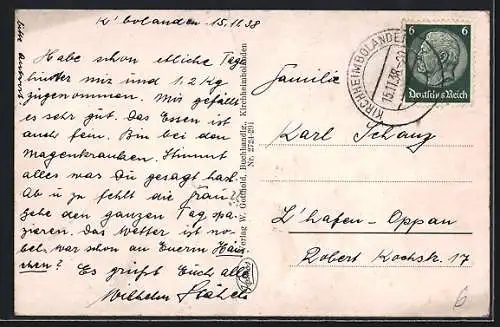 K'bolanden 15.11.38
Bitte Antwort
Habe schon etliche Tage
hinter mir und 1,2 kg
zugenommen. Mir gefällts
es sehr gut. Das Essen ist
auch fein. Bin bei den
Magenkranken. Stimmt
alles was Du gesagt hast.
Ab u. zu fehlt die Frau.
gehe den ganzen Tag spa-
zieren. Das Wetter ist no-
bel, war schon an Euerm Häus-
chen? Es grüßt Euch alle
Wilhelm
Verlag W. Gotthold, Buchhandlg., Kirchheimbolanden
Nr. 2724/291
KIRCHHEIMBOLANDEN
15.11.38
6 6
Deutsches Reich
Familie
Karl Schanz
L'hafen-Oppau
Robert Kochstr. 17
6